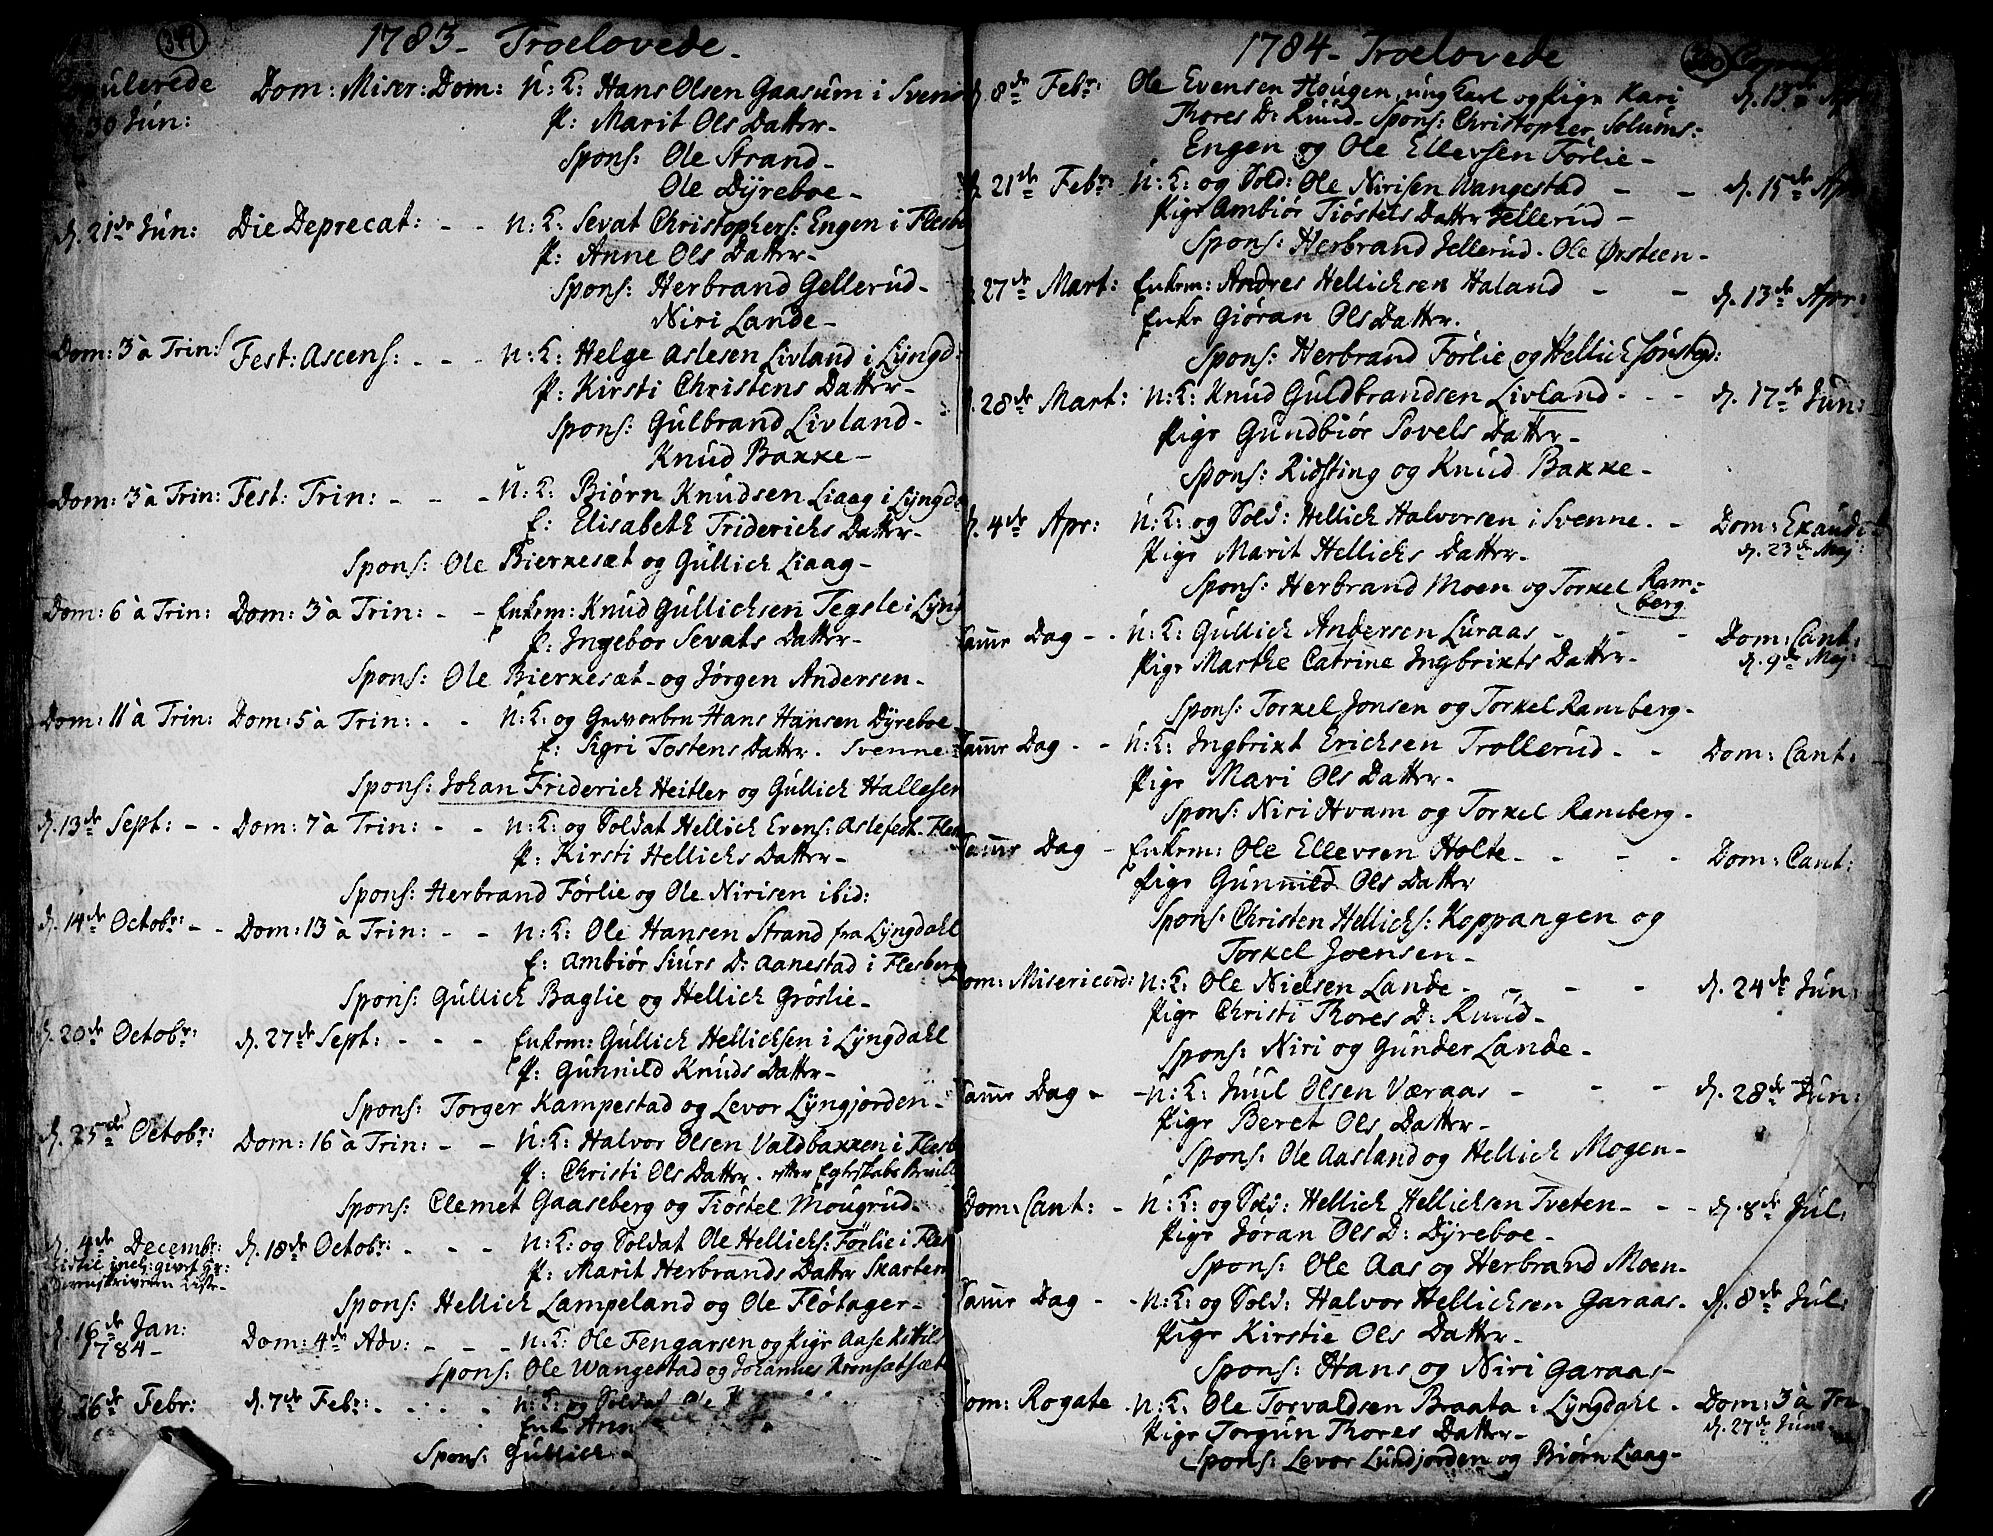 349
1783 - Troelovede -
Copulerede Dom: Miser: Dom: U: K: Hans Olsen Gaasum i Svenne
30 Jun: P: Marit Ols Datter -
Spons: Ole Strand -
Ole Dÿreboe -
d. 21de Jun: Die Deprecat: - - U: K: Sevat Christophers: Engen i Flesb
P: Anne Ols Datter -
Spons: Herbrand Gellerud -
Niri Lande -
Dom: 3 à Trin: Fest: Ascens: - - - U: K: Helge Aslesen Livland i Lÿngd:
P: Kirsti Christens Datter -
Spons: Gulbrand Livland -
Knud Bakke -
Dom: 3 à Trin: Fest: Trin: - - - U: K: Biørn Knudsen Liaag i Lÿngd
E: Elisabeth Friderichs Datter -
Spons: Ole Bierkesæt og Gullich Liaag -
Dom: 6 à Trin: Dom: 3 à Trin: - - Enkem: Knud Gullichsen Tegsle i Lÿng
P: Ingebor Sevats Datter -
Spons: Ole Bierkesæt - og Jørgen Andersen -
Dom: 11 à Trin: Dom: 5 à Trin: - - U: K: og Gevorben Hans Hansen Dÿreboe -
E: Sigri Tostens Datter. Svenne -
Spons: Johan Friderich Heitler og Gullich Hallesen
d. 13de Sept: - - Dom: 7 à Trin: - - U: K: og Soldat Hellich Evens: Aslefest - Fles
P: Kirsti Hellichs Datter -
Spons: Herbrand Førlie og Ole Nirisen ibid:
d. 14de Octobr: - - Dom: 13 à Trin: - - U: K: Ole Hansen Strand fra Lÿngdahl
E: Ambiør Siurs D: Aanestad i Flesberg
Spons: Gullich Baglie og Hellich Grøslie -
d. 20de Octobr: d. 27de Sept: - - - Enkem: Gullich Hellichsen i Lÿngdahl
P: Gunnild Knuds Datter -
Spons: Torger Kampestad og Levor Lÿngjorden -
d. 25de Octobr: Dom: 16 à Trin: - - U: K: Halvor Olsen Valdbakken i Flesb
P: Christi Ols Datter. efter Egteskabs Bevill
Spons: Clemet Gaaseberg og Tiøstel Mougrud -
d. 4de Decembr: d. 18de Octobr: - - - U: K: og Soldat Ole Hellichs: Førlie i Fles
P: Marit Herbrands Datter
Spons: Hellich Lampeland og Ole Fløtager -
d. 16de Jan: 1784 - Dom: 4de Adv: - - - U: K: Ole Fengarsen og Pige Aase Kittils
Spons: Ole Wangestad og Johannes
d. 26de Febr: d. 7de Febr: - - - U: K: og Soldat Ole
Enk: Ann
Spons: Gullich
1784 - Troelovede
d. 8de Febr: Ole Evensen Hougen, ung Carl og Pige Kari d. 13de Apr
Thores D: Ruud - Spons: Christopher Solums:
Engen og Ole Ellevsen Førlie -
d. 21de Febr: U: K: og Sold: Ole Nirisen Wangestad - - d. 15de Apr
Pige Ambiør Tiøstels Datter Gellerud -
Spons: Herbrand Gellerud. Ole Ørsteen -
d. 27de Mart: Enkem: Andres Hellichsen Haland - - d. 13de Apr:
Enke Giøran Ols Datter.
Spons: Herbrand Førlie og Hellich
d. 28de Mart: U: K: Knud Guldbrandsen Livland - - - d. 17de Jun:
Pige Gundbiør Sovels Datter -
Spons: Ridsting og Knud Bakke -
d. 4de Apr: U: K: og Sold: Hellich Halvorsen i Svenne. - Dom: Exaudi
Pige Marit Hellichs Datter - d. 23de Maj:
Spons: Herbrand Moen og Torkel Ram-
berg
Samme Dag - - U: K: Gullich Andersen Luraas - - - Dom: Cant:
Pige Marthe Catrine Ingbrikts Datter - d. 9de Maj:
Spons: Torkel Jonsen og Torkel Ramberg -
Samme Dag - - U: K: Ingbrikt Ericksen Trollerud - - Dom: Cant:
Pige Mari Ols Datter -
Spons: Niri Hvam og Torkel Ramberg -
Samme Dag - Enkem: Ole Ellevsen Holte - - - - Dom: Cant:
Pige Gunnild Ols Datter
Spons: Christen Hellichs: Koppangen og
Torkel Joensen -
Dom: Misericord: U: K: Ole Nielsen Lande - - - - d. 24de Jun:
Pige Christi Thores D: Ruud -
Spons: Niri og Gunder Lande -
Samme Dag - - U: K: Juul Olsen Væraas - - - d. 28de Jun:
Pige Beret Ols Datter -
Spons: Ole Aasland og Hellich Mogen -
Dom: Cant: - U: K: og Sold: Hellich Hellichsen Tveten - - - d. 8de Jul:
Pige Jøran Ols D: Dÿreboe -
Spons: Ole Aas og Herbrand Moen -
Samme Dag - - U: K: og Sold: Halvor Hellichsen Garaas - d. 8de Jul:
Pige Kirstie Ols Datter -
Spons: Hans og Niri Garaas -
Dom: Rogate - U: K: Ole Torvaldsen Braata i Lÿngdahl - Dom: 3 à Tri
Pige Torgun Thores Datter - d. 27de Junii
Spons: Levor Lundjorden og Biørn Liaag -